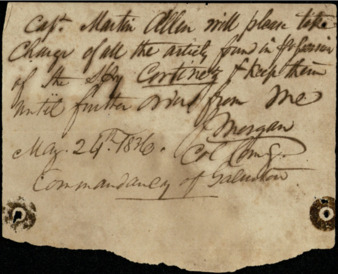 Capt. Martin Allen will please take
Charge of all the articles found in possession
of the Spy Cortinez & keep them
until further orders from me
J Morgan
May 24th. 1836. Col Comg.
Commandancy of Galveston